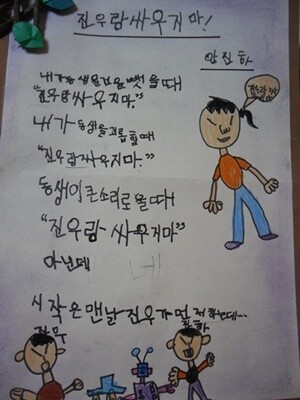 진우랑 싸우지마!
안진하
내가 동생 물건을 뺏을때
"진우랑 싸우지마."
내가 동생을 괴롭힐때
"진우랑 싸우지마."
동생이 큰소리로 울때
"진우랑 싸우지마"
아닌데
시작은 맨날 진우가 먼저 하는데...
진우
진하